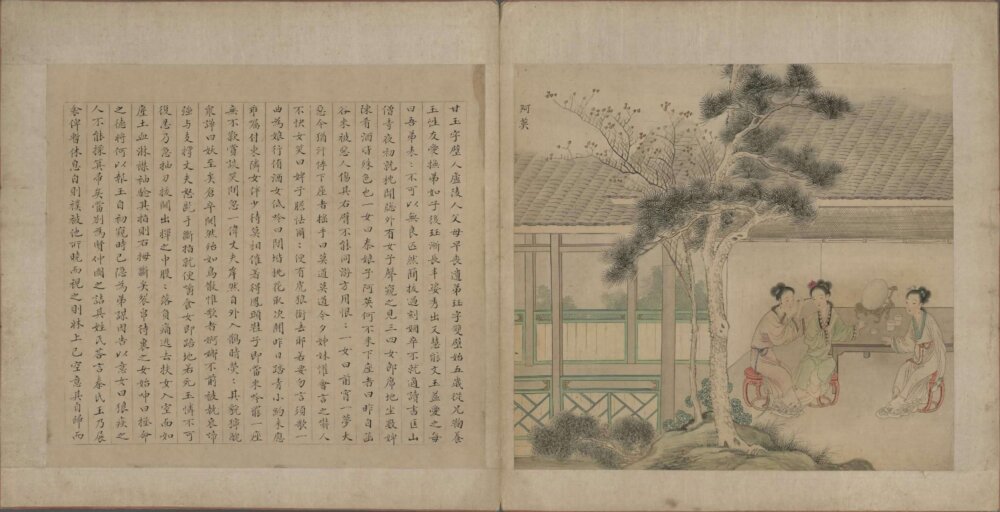 阿英
甘玉字璧人廬陵人父母早喪遺弟珏字雙璧始五歲從兄鞠養
玉性友愛撫弟如子後珏漸長丰姿秀出又慧能文玉益愛之每
曰吾弟表〻不可以無良匹然簡拔過刻姻卒不就適讀書匡山
僧寺夜初就枕聞窗外有女子聲窺之見三四女郎席地坐數婢
陳肴酒皆殊色也一女曰秦娘子阿英何不來下座者曰昨自函
谷來被惡人傷其右臂不能同游方用恨〻一女曰前宵一夢大
惡今猶汗悸下座者搖手曰莫道莫道今夕姊妹懽會言之嚇人
不快女笑曰婢子膽怯爾〻便有虎狼銜去耶若要勿言須歌一
曲為娘行侑酒女低吟曰閒堦桃花取次開昨日踏青小約未應
乖囑付東隣女伴少待莫相催著得鳳頭鞋子即當來吟罷一座
無不歎賞談笑間忽一偉丈夫岸然自外入鶻睛熒〻其貌獰醜
衆譁曰妖至矣倉卒鬨然殆如鳥散惟歌者婀娜不前被執哀啼
強與支撐丈夫怒齕手斷指就便嚼食女即踣地若死玉憐不可
復忍乃急抽刀拔關出揮之中股〻落負痛逃去扶女入室面如
塵土血淋襟袖驗其指則右拇斷矣裂帛代裹之女始呻曰拯命
之德將何以報玉自初窺時已隱為弟謀因告以意女曰狼疾之
人不能操箕帚矣當別為賢仲圖之詰其姓氏答言秦氏玉乃展
衾俾暫休息自則襆被他所曉而視之則牀上已空意其自歸而